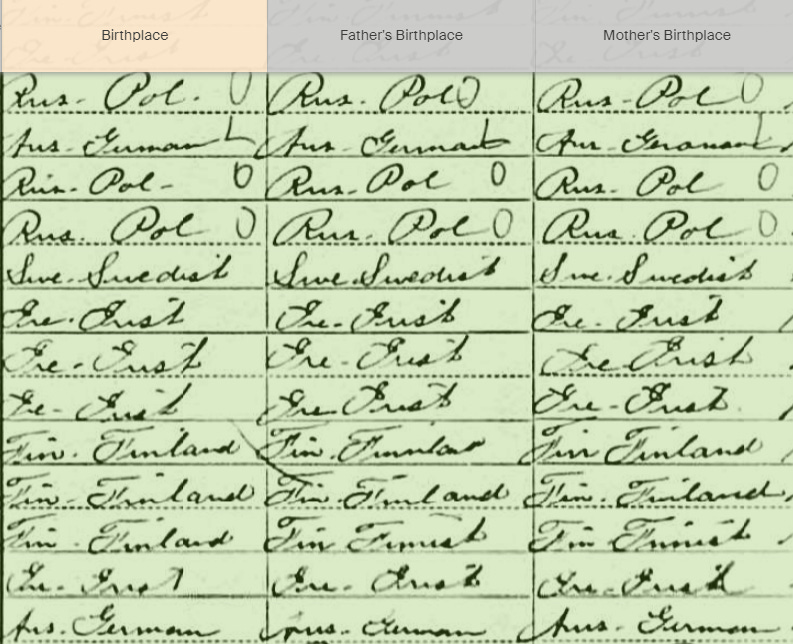 Birthplace Father's Birthplace Mother's Birthplace
Rus- Pol. 0 Rus. Pol 0 Rus-Pol 0
Aus-German Aus-German Aus-German
Rus-Pol- 0 Rus-Pol 0 Rus-Pol 0
Rus. Pol 0 Rus. Pol 0 Rus. Pol 0
Swe. Swedish Swe. Swedish Swe. Swedish
Ire. Irish Ire-Irish Ire-Irish
Ire-Irish Ire-Irish Ire Irish
Ire-Irish Ire Irish Ire-Irish
Fin. Finland Fin. Fin Finland
Fin-Finland Fin-Finland Fin. Finland
Fin-Finland Fin Finnish Fin Finnish
Ire-Irish Ire-Irish Ire-Irish
Aus. German Aus-German Aus-German